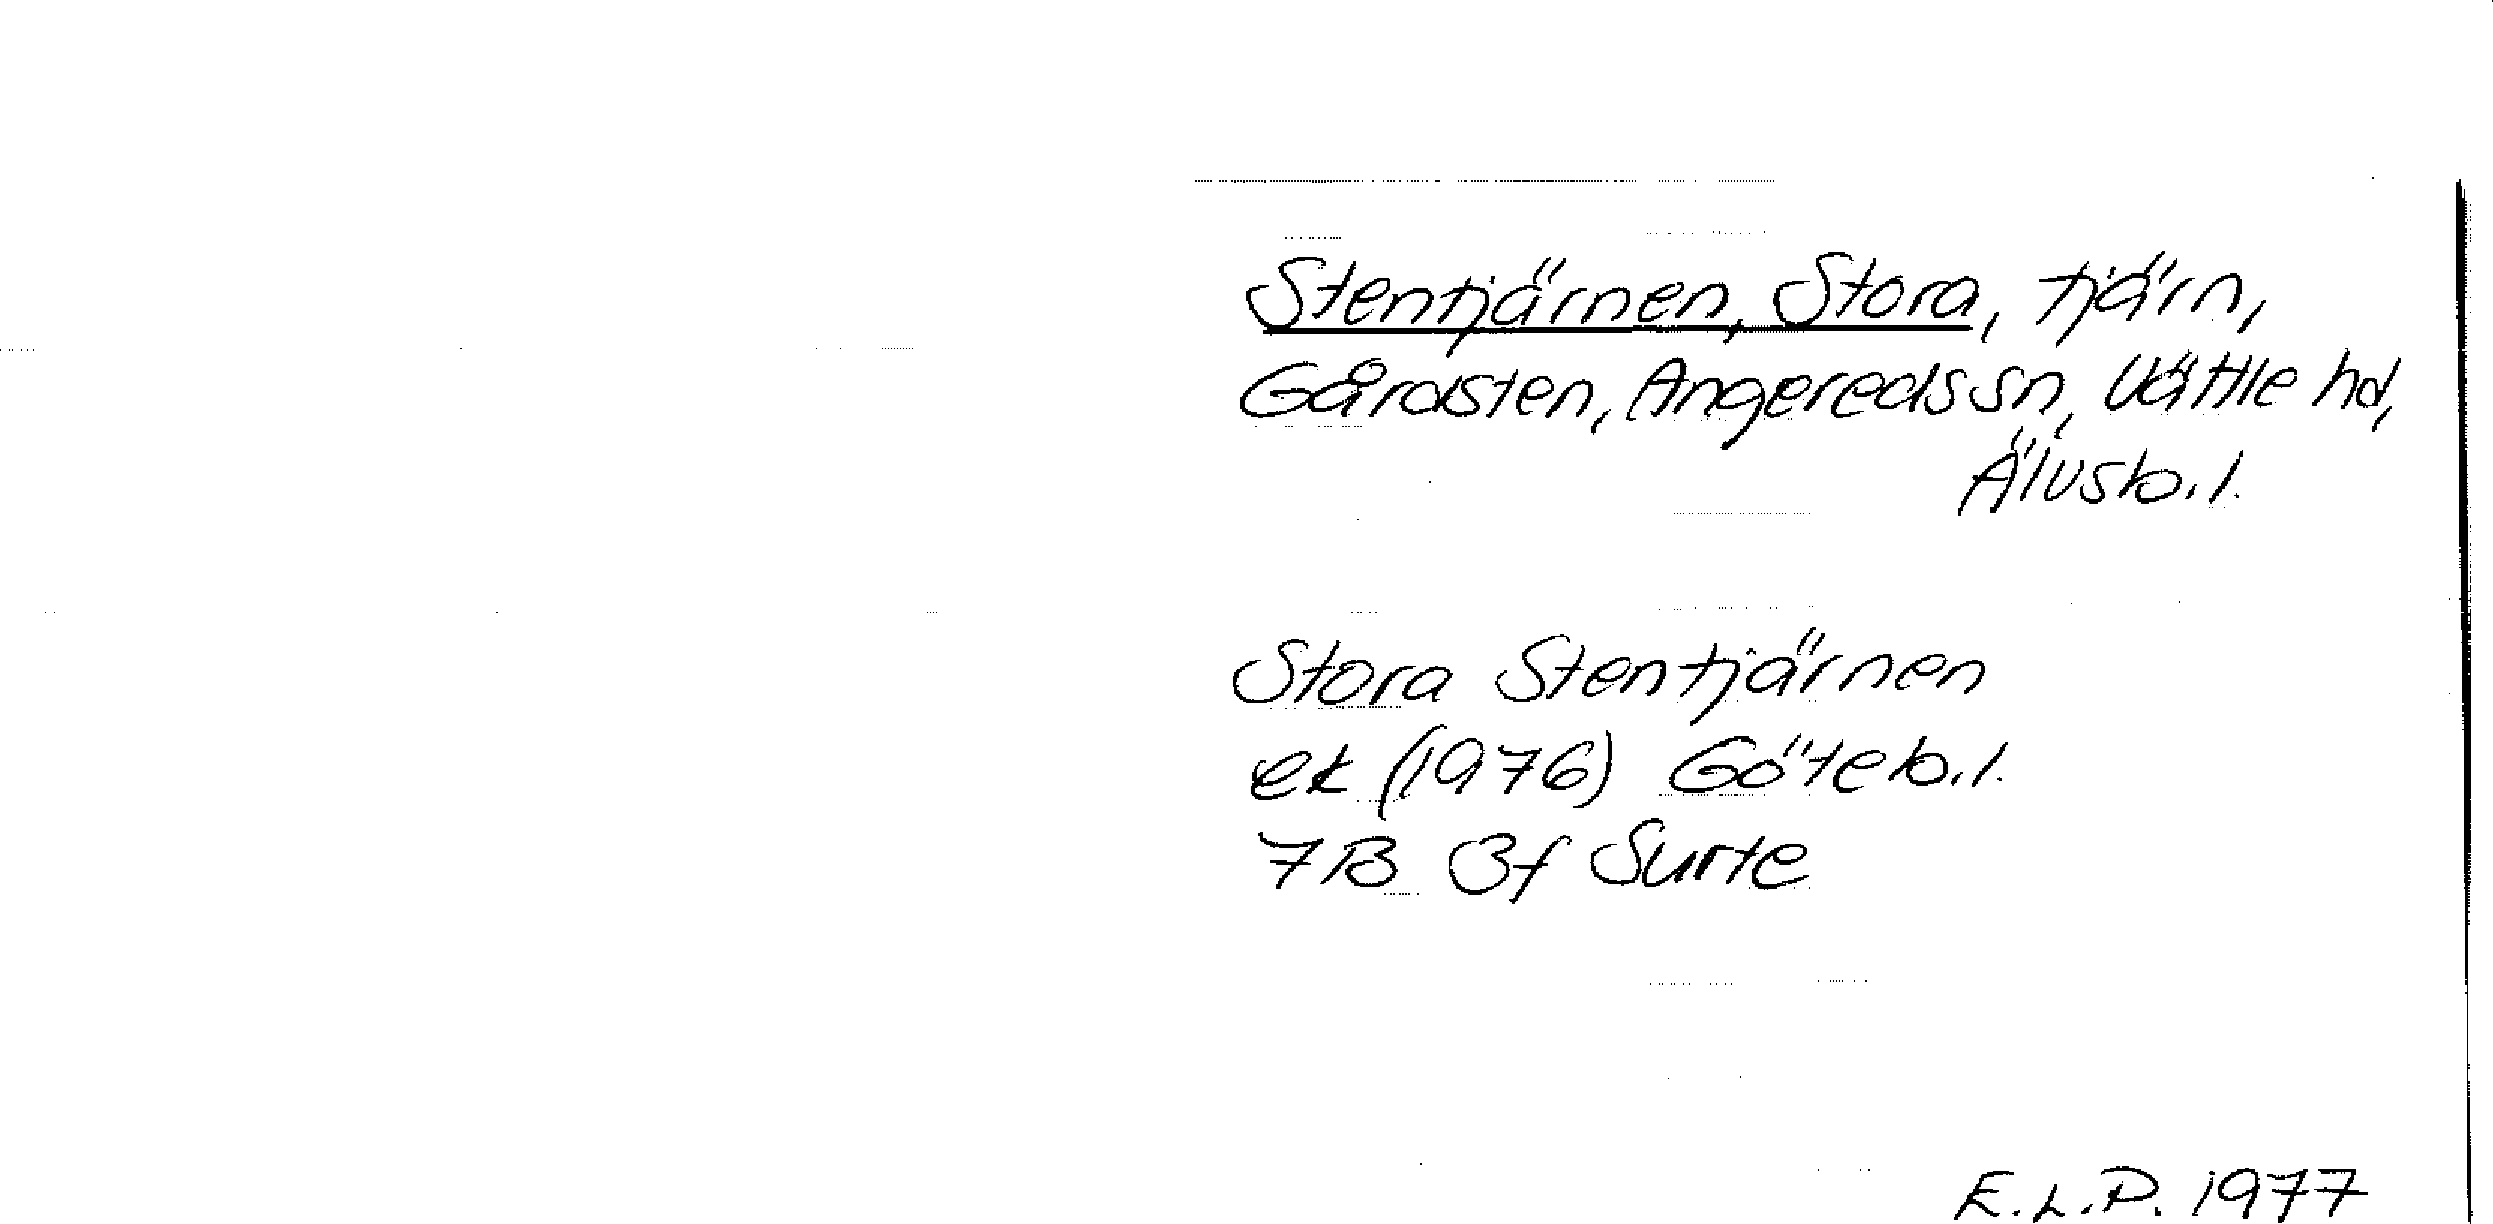 Stentjärnen, Stora, tjärn,
Gårdsten, Angereds sn, Vättle hd,
Älvsb. l.
Stora Stentjärnen
ek (1976) Göteb. l.
7B 3f Surte
E.L.P. 1977